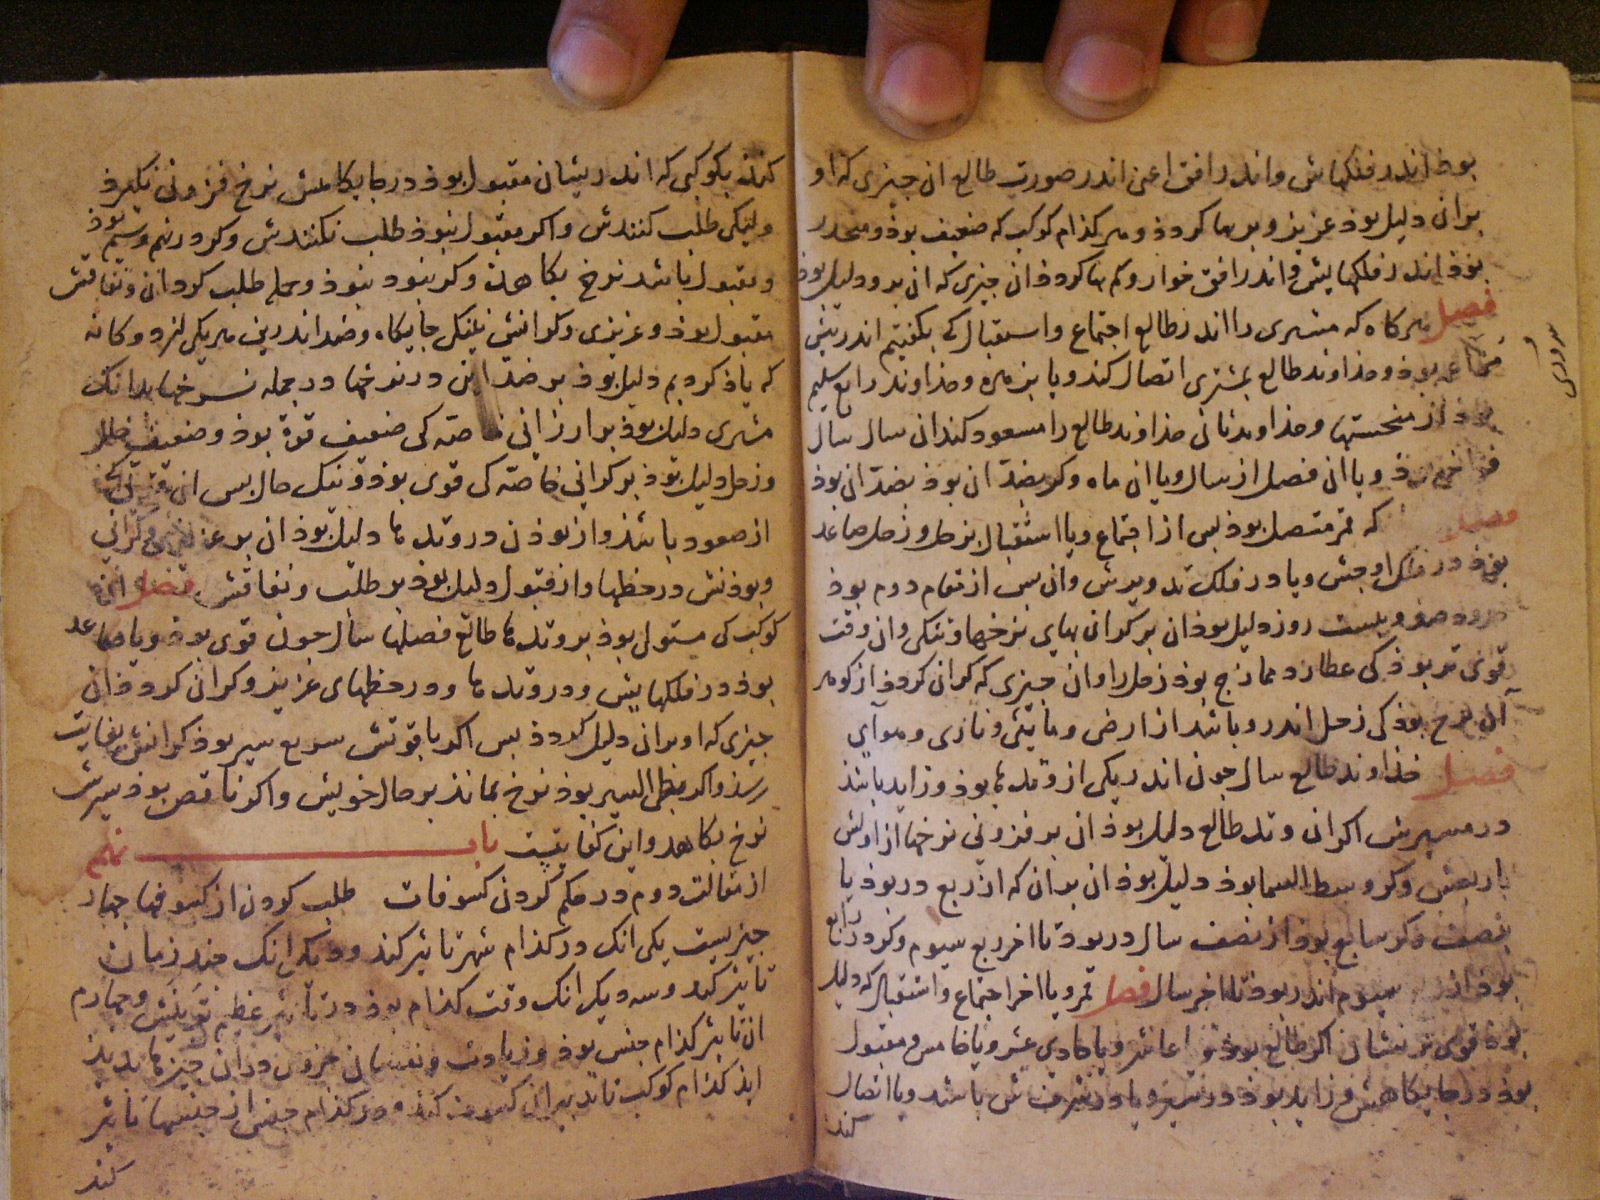 بوذ اندر فلکهایش واندر افق اعنی اندر صورت طالع ان چیزی که او
بران دلیل بوذ عزیز و بر بها کردذ و هر کذام کوکب که ضعیف بوذ و منحدر
بوذ اندر فلکهایش و اندر افق خوار و کم بها کردذ ان چیزی که ان برو دلیل بوذ
فصل هرکاه که مشتری را اندر طالع اجتماع و استقبال کی بکفتیم اندرینش
بوذ و خذاوند طالع بمشتری اتصال کند و یا بزهره و خذاوند رابع سلیم
بوذ از منحستها و خذاوند ثانی خذاوند طالع را مسعود کند ان سال سال
ویا ان فصل از سال ویا ان ماه و کر بضد ان بوذ بضد ان بوذ
فصل که قمر متصل بوذ بس از اجتماع ویا استقبال بزحل و زحل صاعد
بوذ در فلک اوجش ویا در فلک تدویرش وان بس از مقام دوم بوذ
بیست روز دلیل بوذ ان بر کرانی بهای نرخها و تنکی وان وقت
قوی تر بوذ کی عطارد ممازج بوذ زحل را وان چیزی که کران کردذ از کوهر
آن برج بوذ کی زحل اندرو باشد از ارضی و مایئی و ناری و هوآیی
فصل خذاوند طالع سال چون اندر یکی از وتدها بوذ و زاید باشذ
در مسیرش اکر ان وتد طالع دلیل بوذ ان بر فزونی نرخها از اولش
تا ربعش و کر وسط السما بوذ دلیل بوذ ان بران که از ربع دربوذ تا
بنصف و کر سابع بوذ از نصف سال دربوذ تا اخر ربع سیوم و کر در رابع
بوذ از سیوم اندربوذ تا اخر سال فصل قمر ویا اخر اجتماع و استقبال که دلیل
بوذ قوی تر نشان اکر طالع بوذ ویا عاشر ویا حادی عشر ویا خامس و مقبول
بوذ در جایکاهش و زاید بوذ در سیر ویا در شرفش باشد ویا اتصال
کند
کند بکوکبی که اندریشان مقبول بوذ در جایکاهش نرخ فزونی بکیرذ
و لیکن طلب کنندش و اکر مقبول نبوذ طلب نکنندش و کر در نهم و سیم بوذ
و مقبول باشد نرخ بکاهد و کر نبود نبوذ و جمله طلب کردن و نفاقش
مقبول بوذ و عزیزی و کرانیش نیکی جایکاه و ضد اندرین هر یکی لنزد و کانه
که یاذ کردیم دلیل بوذ بر ضد این در نرخها در جمله نرخها بدانک
مشتری دلیل بوذ بر ارزانی خاصه کی ضعیف قوة بوذ و ضعیف حال
و زحل دلیل بوذ بر کرانی خاصه کی قوی بوذ و نیک حال بس ان
از صعود باشذ و از بوذن در وتدها دلیل بوذ ان بر عزیزی و کرانی
و بوذنش در حظها و از قبول دلیل بوذ بر طلب و نفاقش فصل ان
کوکب کی مستولی بوذ بر وتدها طالع فصلها سال چون قوی بوذ ویا صاعد
بوذ در فلکهایش و در وتدها و در حظهای عزیز و کران کردذ ان
چیزی که او بران دلیل کردذ بس اکر با قوتش سریع سیر بوذ کرانیش بغایت
رسذ و اکر بطی السیر بوذ نرخ بماند بر حال خویش و اکر ناقص بوذ سیرش
نرخ بکاهد و این کفایتست باب نهم
از مقالت دوم در حکم کردن کسوفات طلب کردن از کسوفها چهار
چیزست یکی انک در کذام شهر تاثیر کند و دیکر انک چند زمان
تاثیر کند و سه دیکر انک وقت کذام بوذ در تاثیر عظیم قویش و چهارم
ان تاثیر کذام جنس بوذ و زیادت و نقصان چون در ان چیزها بدید
ایذ کذام کوکب تاثیر ان کسوف کند و در کذام جنس از جنسها تاثیر
کند